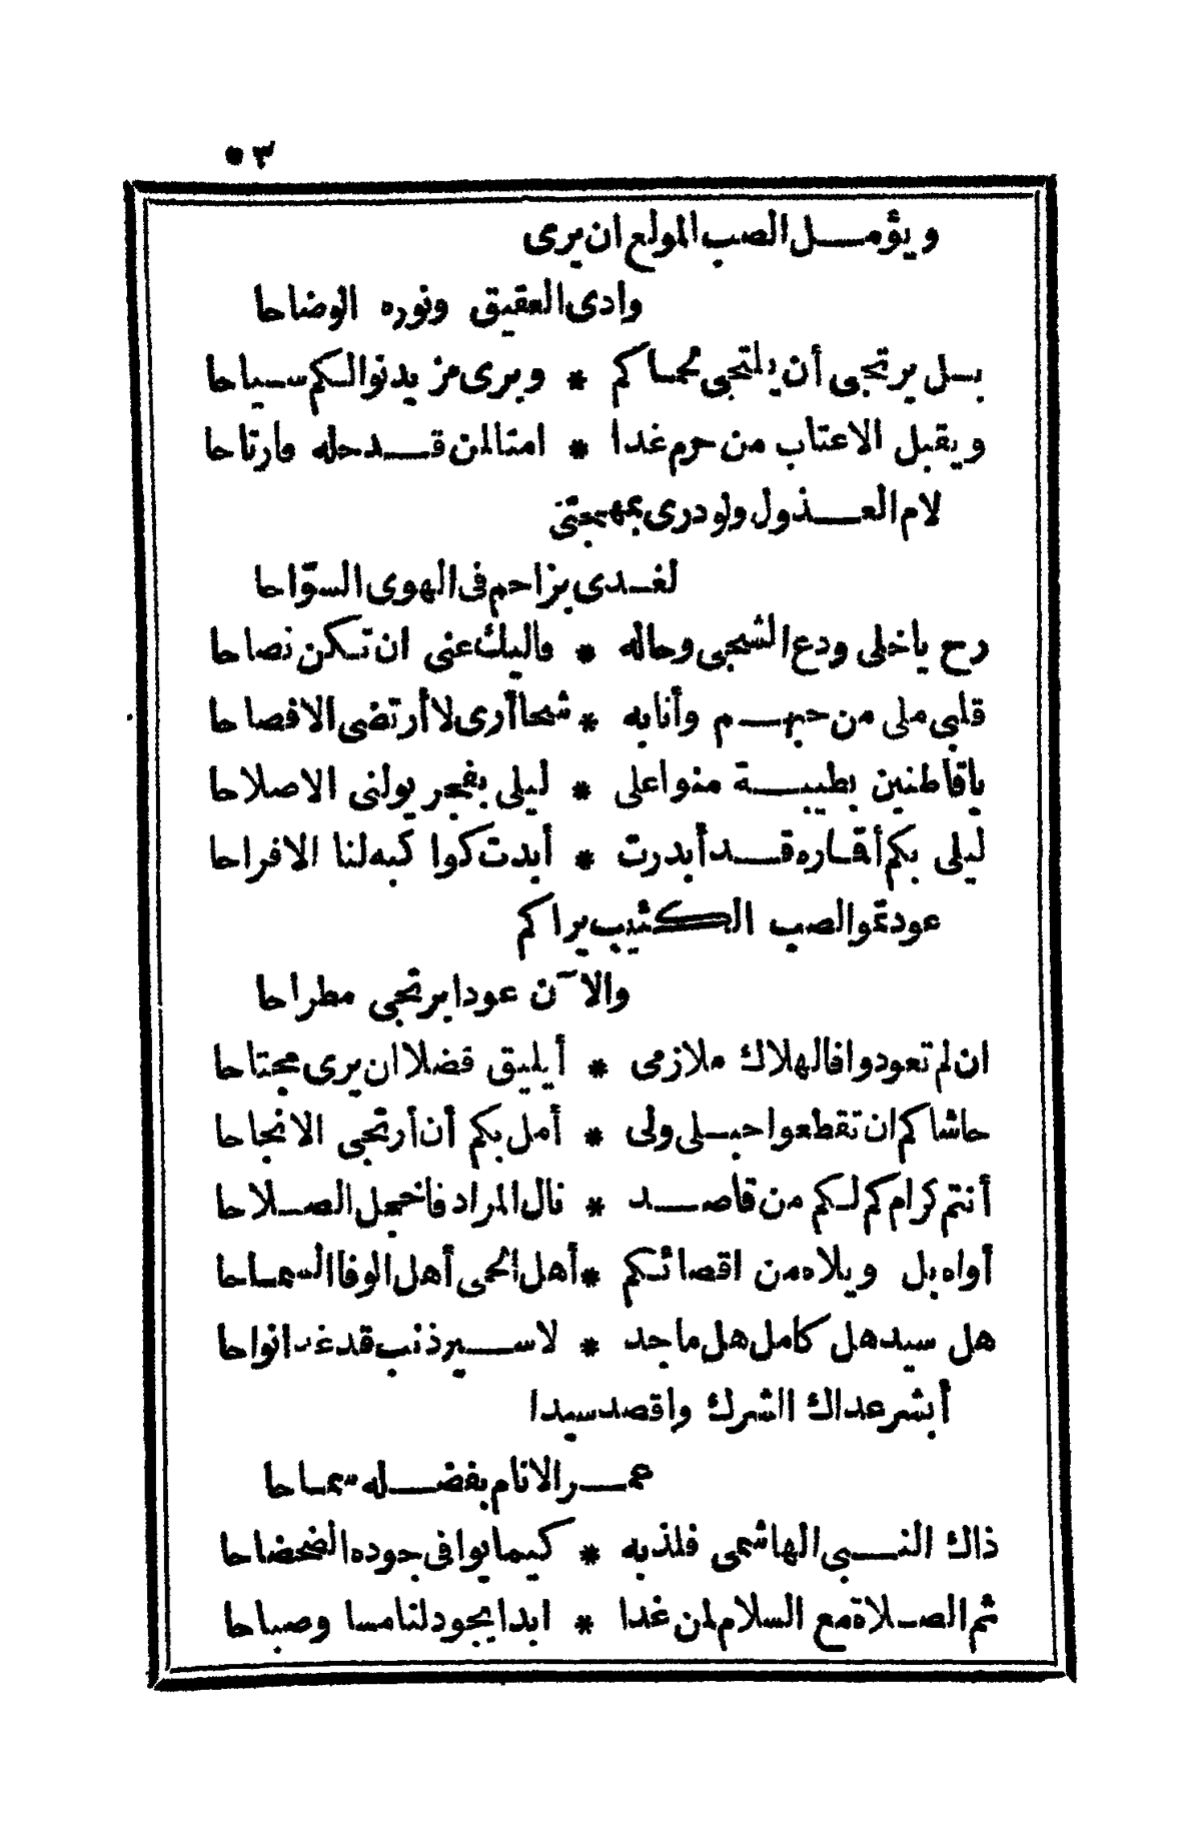 ٥٣
ويؤمل الصب المولع ان يرى
وادى العقيق ونوره الوضاحا
بل يرتجى أن يلتجى لحماكم * ويرى مزيدنوالكم سياحا
ويقبل الاعتاب من حرم غدا * امنا لمن قد حله مارتاحا
لام العذول ولو درى بمهجتى
لغدى يزاحم فى الهوى السوّاحا
رح ياخلى ودع الشجى وحاله * فاليك عنى ان تكن نصاحا
قلبى ملى من حبهم وأنا به * شحا أرى لا أرتضى الافصاحا
ياقاطنين بطيبة منوا على * ليلى بفجر يولنى الاصلاحا
ليلى بكم أقاره قد أبدرت * أبدت كواكبه لنا الافراحا
عودتموا الصب الكئيب يراكم
والا ّن عودا يرتجى مطراحا
ان لم تعودوا فالهلاك ملازمى * أيليق فضلا ان يرى مجتاحا
حاشاكم ان تقطعوا حبلى ولى * أمل بكم أن أرتجى الانجاحا
أنتم كرام كم لكم من قاصد * نال المراد فاخجل الصلاحا
أواه بل ويلاه من اقصائكم * أهل الحى أهل الوفا السماحا
هل سيد هل كامل هل ماجد * لاسير ذنب قد انواحا
أبشر عداك الشرك واقصد سيدا
عمر الانام بفضله سماحا
ذاك النبى الهاشمى فلذ به * كيما يوافى جوده الضحضاحا
ثم الصلاة مع السلام لمن غدا * ابدا يجود لنا مسا وصباحا